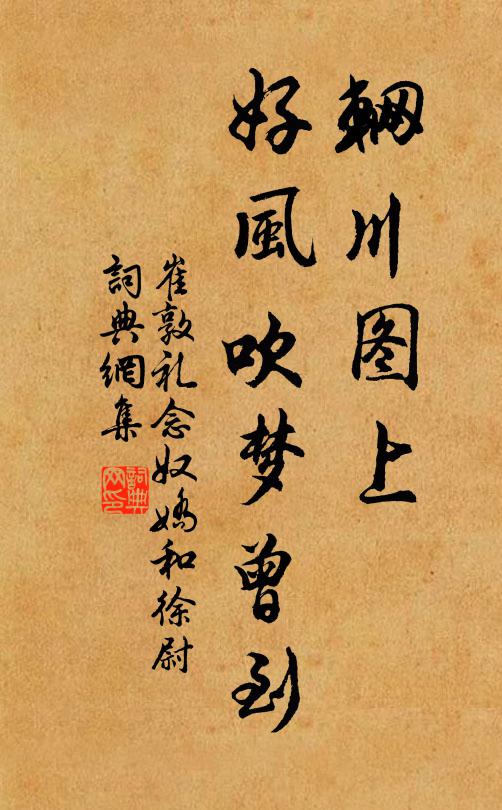 輞川图上
好風吹梦曾到
崔敦礼念奴嬌和徐尉
詞典網集
詞典
网印